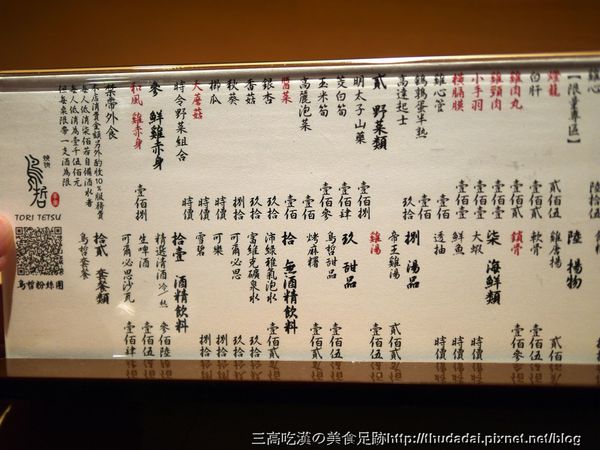 【限量專區】
燈籠 貳佰伍
白肝 壹佰貳
雞肉丸 壹佰
雞頸肉 壹佰壹
小手羽 壹佰壹
橫膈膜 壹佰
雞心管 壹佰
鵪鶉蛋半熟
高達起士 玖拾
貳 野菜類
明太子山藥 壹佰捌
茭白筍 壹佰肆
玉米筍 壹佰參
高麗泡菜 壹佰
醬菜 壹佰
銀杏
香菇
秋葵 捌拾
櫛瓜
大蘑菇 時價
時令野菜組合 時價
參 鮮雞赤身
和風 雞赤身 壹佰捌
禁帶外食
本店消費金額另外酌收10%服務費
每人低消柒佰若自備酒水者
每人低消為壹千伍佰元
但每桌限帶一支酒為限
燒鳥
鳥哲
TORI TETSU
鳥哲粉絲團
陸 揚物
雞唐揚 貳佰
軟骨 壹佰伍
鎖骨 壹佰參
柒 海鮮類
大蝦 時價
鮮魚 時價
透抽 時價
捌 湯品
帝王雞湯 貳佰貳
雞湯 壹佰伍
玖 甜品
鳥哲甜品 壹佰伍
烤麻糬 壹佰貳
拾 無酒精飲料
沛綠雅氣泡水 壹佰貳
富維克礦泉水 玖拾
可爾必思 玖拾
可樂 捌拾
雪碧 捌拾
拾壹 酒精飲料
精選清酒 冷/熱 參佰陸
生啤酒 壹佰伍
可爾必思沙瓦 壹佰肆
拾貳 套餐類
鳥哲套餐
三高吃漢の美食足跡http://thudadai.pixnet.net/blog